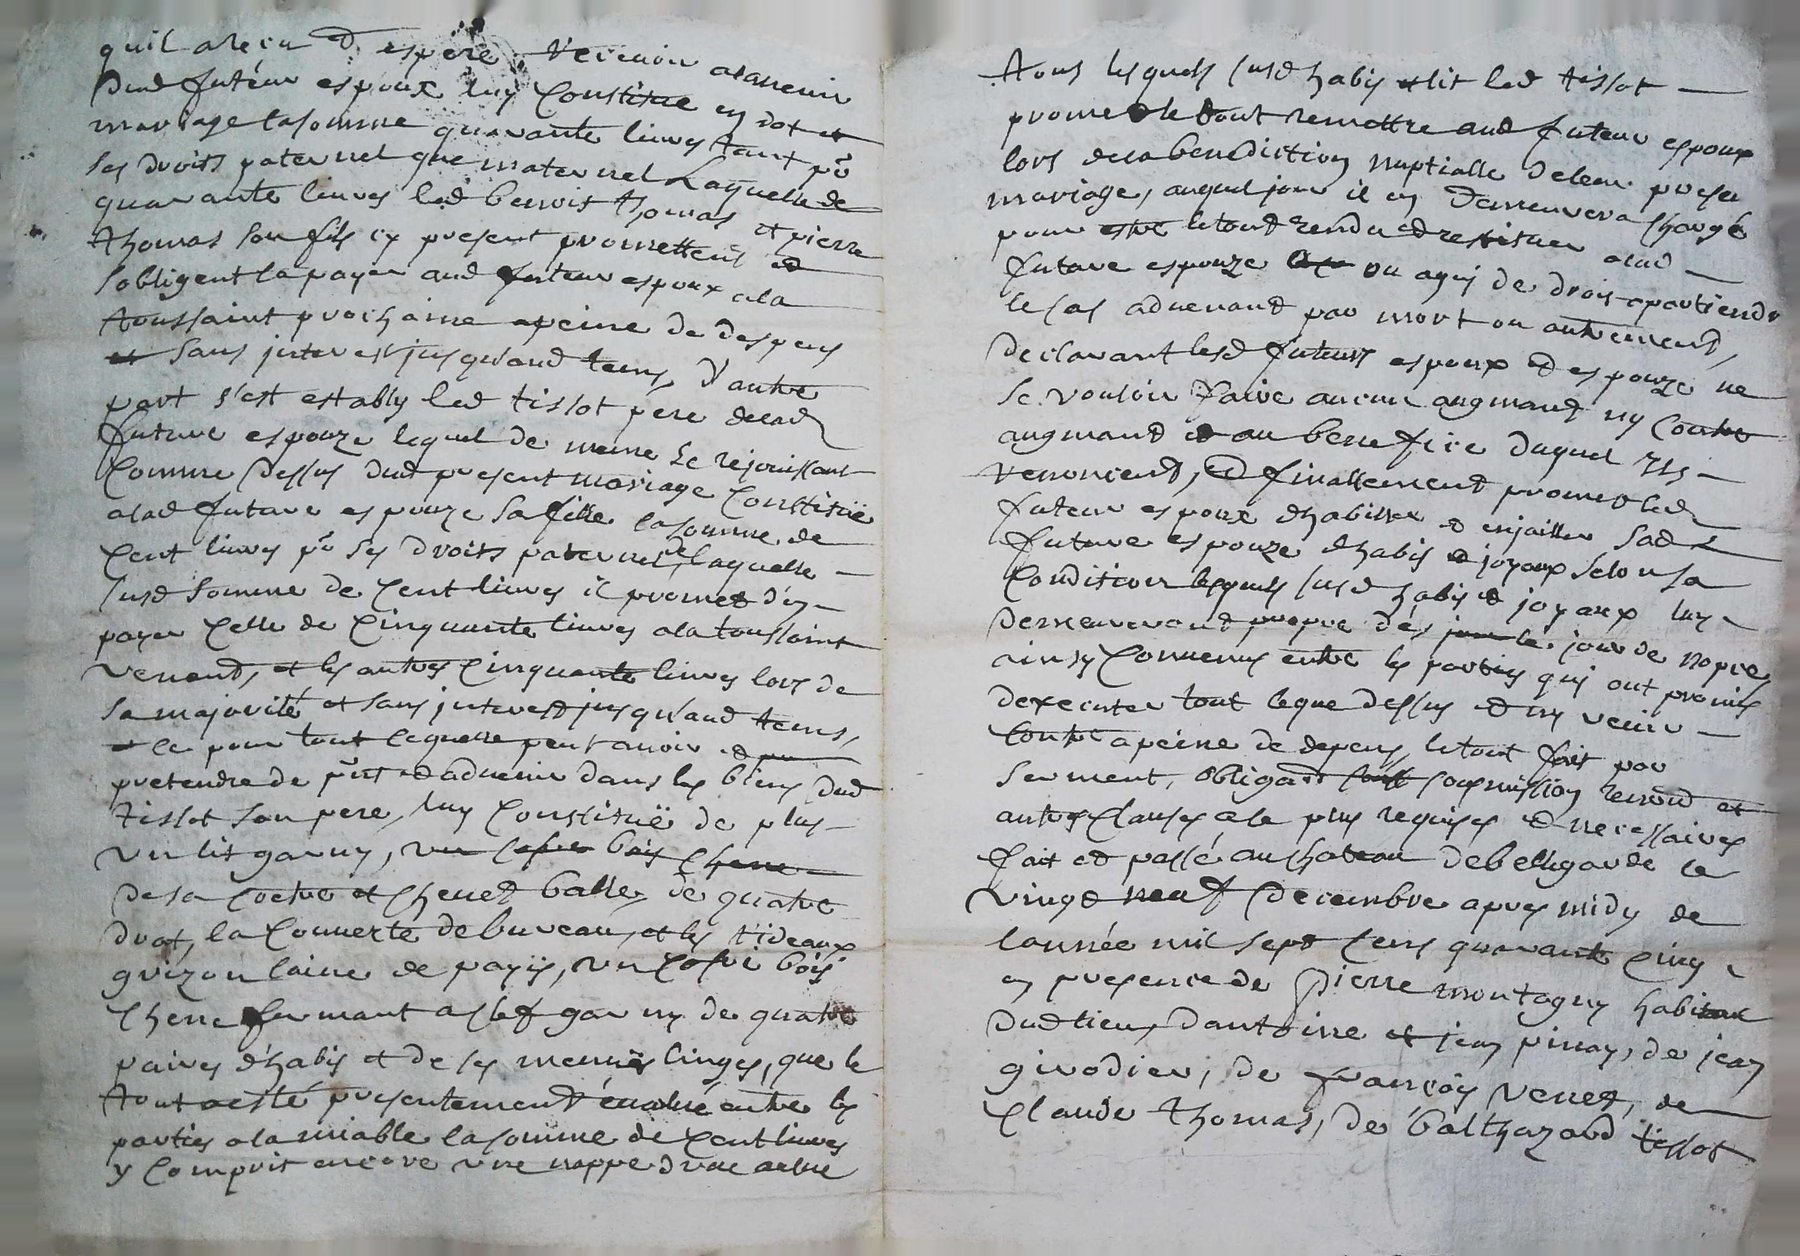 quil a recu et espere recevoir a ladvenir
dud futeur espoux luy constitue en dot et
mariage la somme quarante livres tant pr
ses droits paternel que maternel laquelle de
quarante livres led benoit thomas et pierre
thomas son fils cy present promettent et
sobligent la payer aud futeur espoux a la
toussaint prochaine a peine de despens
et sans interest jusquaud tems, d'autre
part s'est estably led tissot pere de lad
future espouze lequel de meme se rejouissant
comme dessus dud present mariage constitue
a lad future espouze sa fille la somme de
cent livres pr ses droits paternel, laquelle
susd somme de cent livres il promet d'en
payer celle de cinquante livres a la toussaint
venant, et les autres cinquante livres lors de
sa majorité et sans interest jusqu'aud tems,
et ce pour tout ce quelle peut avoir et
pretendre de pnt et advenir dans les biens dud
tissot son pere, luy constituë de plus
un lit garny, un cofre bois chene
de sa coetre et chevet balle, de quatre
drat, la couverte de bureau, et les rideaux
grizon laine de payis, un cofre bois
chene fermant a clef garny de quatre
paires d'habis et de ses menus linges, que le
tout a esté presentement évalué entre les
parties a lamiable la somme de cent livres
y comprit encore une nappe d'une aulne
tous lesquels susd habis et lit led tissot
promet le tout remettre aud futeur espoux
lors de la benediction nuptialle de leur presen
mariage, auquel jour il en demeurera chargé
pour estre le tout rendu et restituer a lad
future espouze ou a qui de droit apartiendr
le cas advenant par mort ou autrement,
declarant lesd futeurs espoux et espouze ne
se vouloir faire aucun augmant ny contre
augmant et au benefice duquel ils
renoncent, et finallement promet led
futeur espoux d'habiller et enjailler sad
future espouze d'habis et joyaux selon sa
condition lesquels susd habis et joyaux luy
demeureront propre dés le jour de nopce
ainsy convenus entre les parties qui ont promis
dexecuter tout le que dessus et ny venir
contre a peine de depens, le tout fait par
serment, obligaon soupmission renoôn et
autres clauses a ce plus requises et necessaires
fait et passé au chateau de bellegarde le
vingt neuf decembre apres midy de
lannée mil sept cens quarante cinq
en presence de pierre montagny habitant
dud lieu, d'antoine et jean pinay, de jean
girodier, de françois venet, de
claude thomas, de balthazard tissot